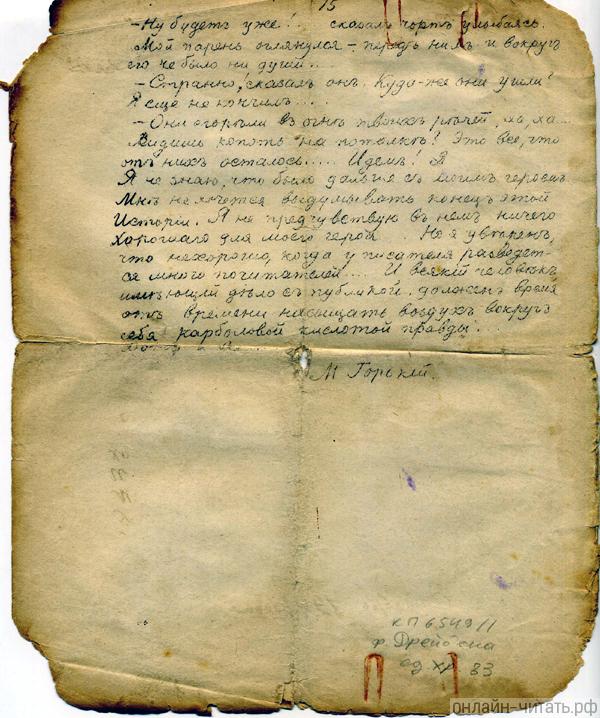 15
— Ну будетъ уже!.. сказалъ чортъ улыбаясь.
Мой парень оглянулся — передъ нимъ и вокругъ
его не было ни души...
— Странно! сказалъ онъ. Куда-же они ушли?
Я еще не кончилъ....
— Они сгорѣли въ огнѣ твоихъ рѣчей, ха, ха...
Видишь копоть на потолкѣ? Это все, что
отъ нихъ осталось..... Идемъ! Я
Я не знаю, что было дальше съ моимъ героемъ.
Мнѣ не хочется выдумывать конецъ этой
Исторіи. Я не предчувствую въ немъ ничего
хорошаго для моего героя. Но я увѣренъ,
что нехорошо, когда у писателя разведет-
ся много почитателей... И всякій человѣкъ,
имѣющій дѣло съ публикой, долженъ время
отъ времени насыщать воздухъ вокругъ
себя карболовой кислотой правды...
М Горькій.
КП 6549/1
ф. Дрейдена
ед хр 83
онлайн-читать.рф